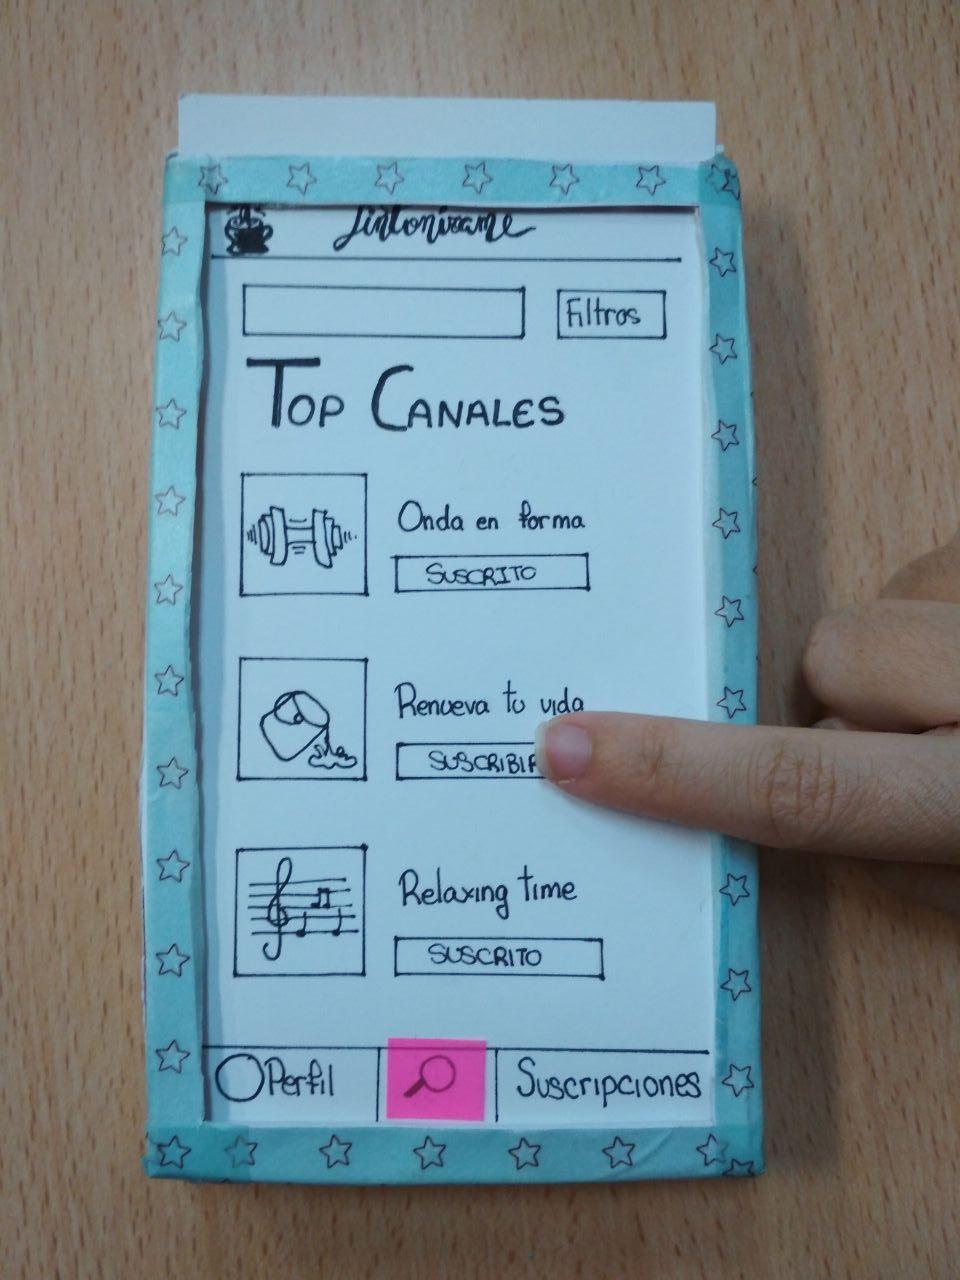 Sintonizame
Filtros
TOP CANALES
Onda en forma
SUSCRITO
Renueva tu vida
SUSCRIBIR
Relaxing time
SUSCRITO
Perfil
Suscripciones